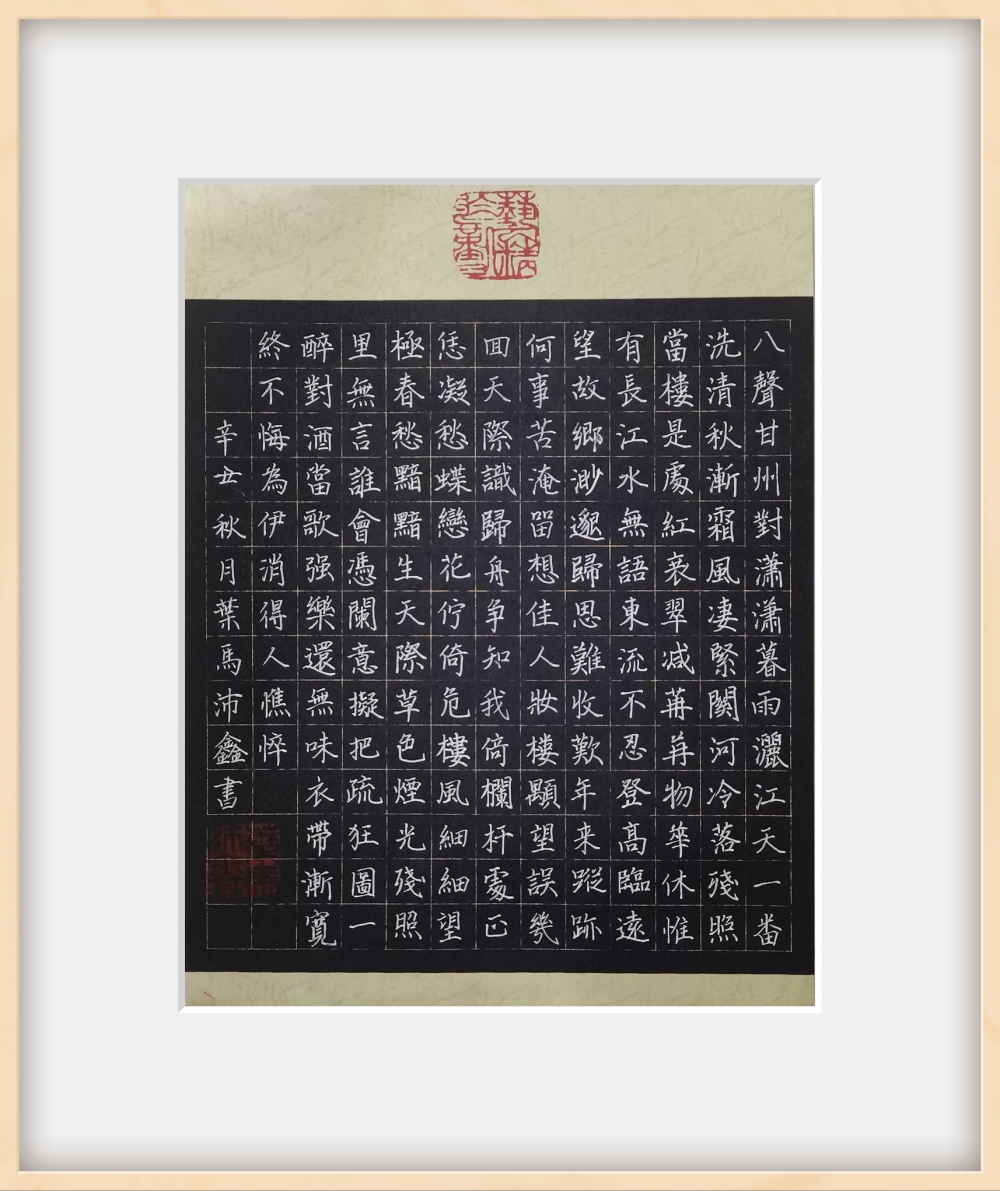 八聲甘州對潇潇暮雨灑江天一番
洗清秋漸霜風凄緊關河冷落殘照
當樓是處紅衰翠减苒苒物華休惟
有長江水無語東流不忍登高臨遠
望故鄉渺邈歸思難收歎年来蹤跡
何事苦淹留想佳人妝樓顒望誤幾
回天際識歸舟争知我倚欄杆處正
恁凝愁蝶戀花佇倚危樓風細細望
極春愁黯黯生天際草色煙光殘照
里無言誰會憑闌意擬把疏狂圖一
醉對酒當歌强樂還無味衣帶漸寬
終不悔為伊消得人憔悴
辛丑秋月葉馬沛鑫書